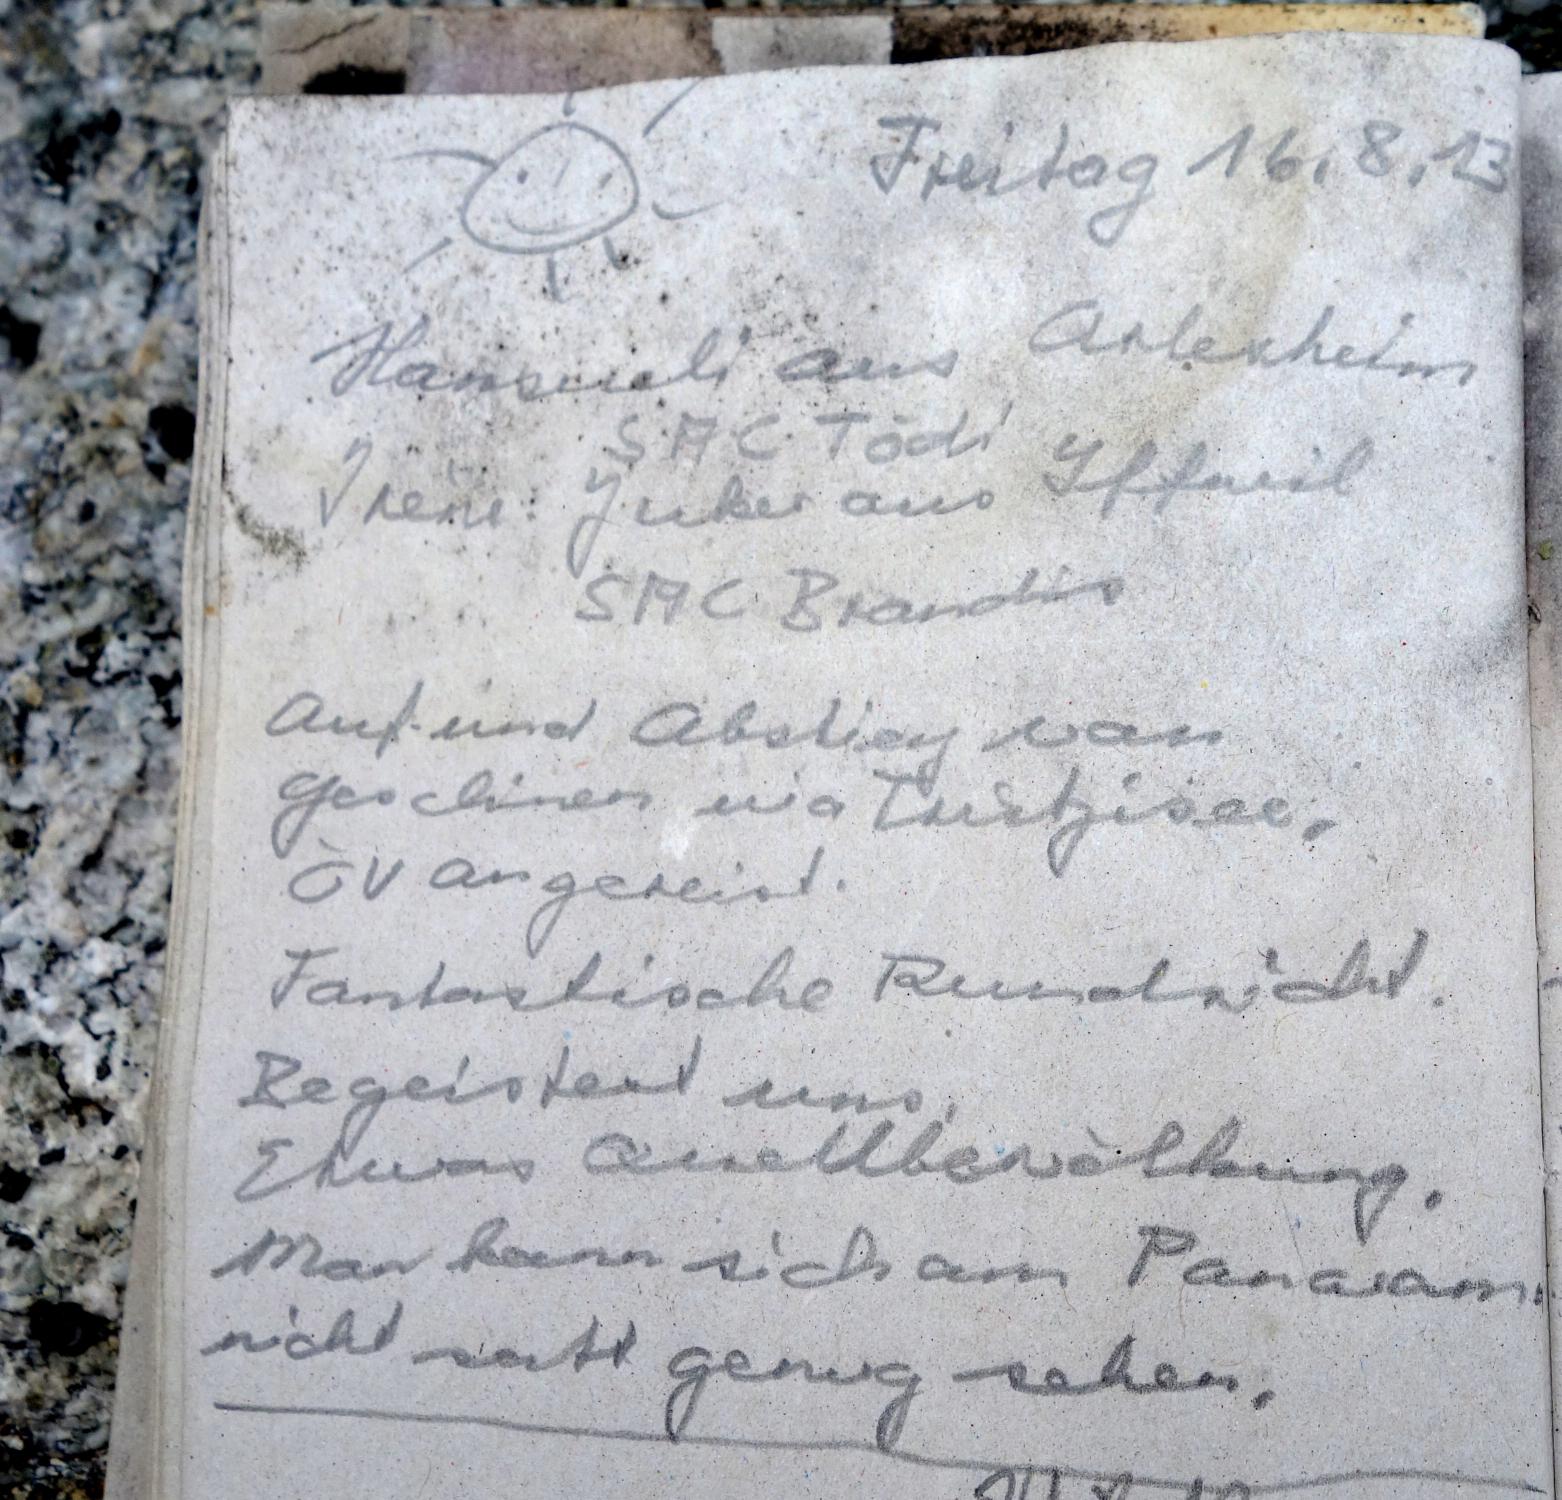 Freitag 16.8.13
Hansueli aus Arlesheim
SAC Tödi
Irène Yuker aus Iffwil
SAC Brandis
Auf- und Abstieg von
Geschinen via Trützisee.
ÖV angereist.
Fantastische Rundsicht.
Begeistert uns.
Etwas Quellbewölkung.
Man kann sich am Panoram
nicht satt genug sehen.